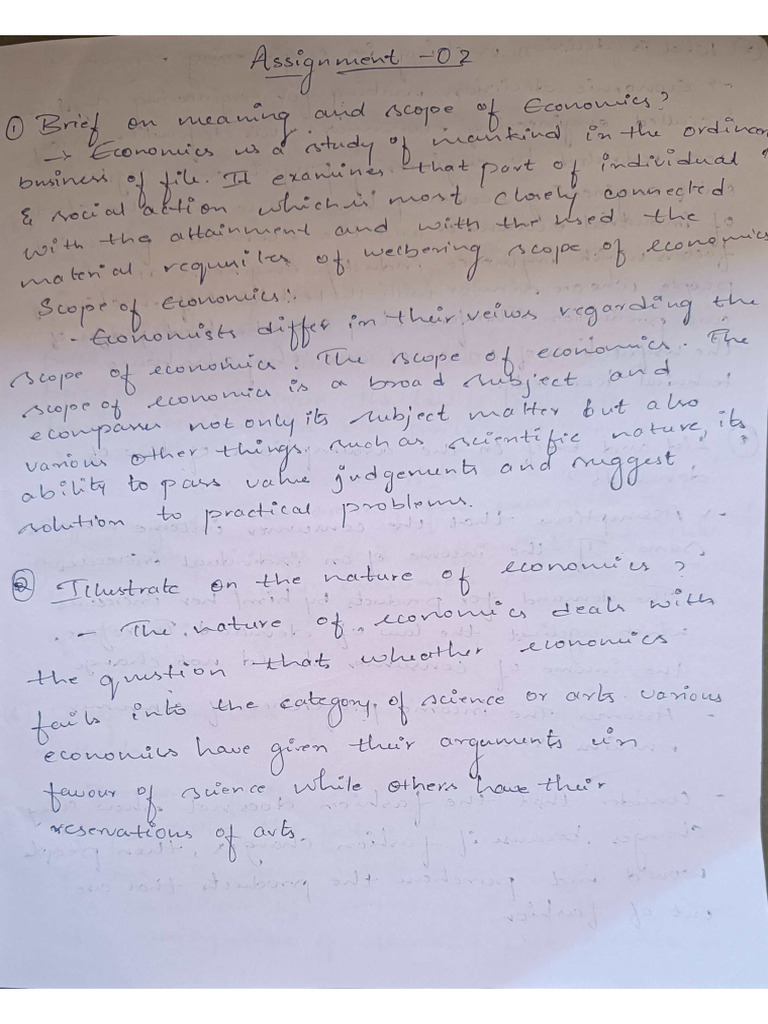 Assignment - 02
① Brief on meaning and scope of Economics?
→ Economics is a study of mankind in the ordinary
business of file. It examines that part of individual
& social action which is most closely connected
with the attainment and with the used the
material requisites of welbening scope of economics
Scope of Economics:.
- Economists differ in their veiws regarding the
scope of economics. The scope of economics. The
scope of economics is a broad subject and
ecompanes not only its subject matter but also
various other things such as scientific nature, its
ability to pass value judgements and suggest
solution to practical problems.
② Illustrate on the nature of economics?
- The nature of economics deals with
the question that wheather economics
fails into the category of science or arts various
economics have given their arguments in
favour of science while others have their
reservations of arts.